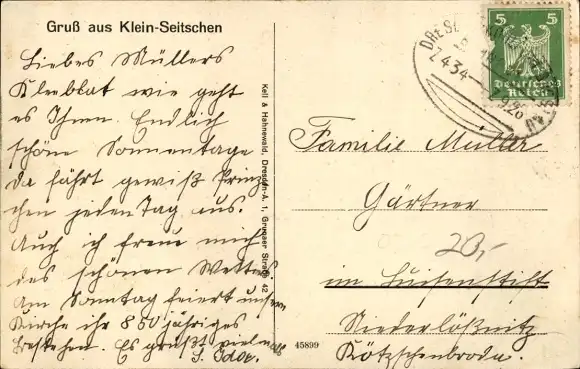 Gruß aus Klein-Seitschen
Liebes Müllers
Kleeblat wie geht
es Ihnen. Endlich
schöne Sonnentage
da fährt gewiß Prinz-
chen jeden Tag aus.
Auch ich freue mich
des schönen Wetters.
Am Sonntag feiert unsere
Kirche ihr 850 jähriges
Bestehen. Es grüßt vielmals
S. Idor.
Keil & Hahnewald, Dresden-A. 1, Grunaer Straße 42
45899
5 5
Deutsches
Reich
Z 434
Familie Müller
Gärtner
20,-
im Luisenstift
Niederlößnitz
Kötzschenbroda.